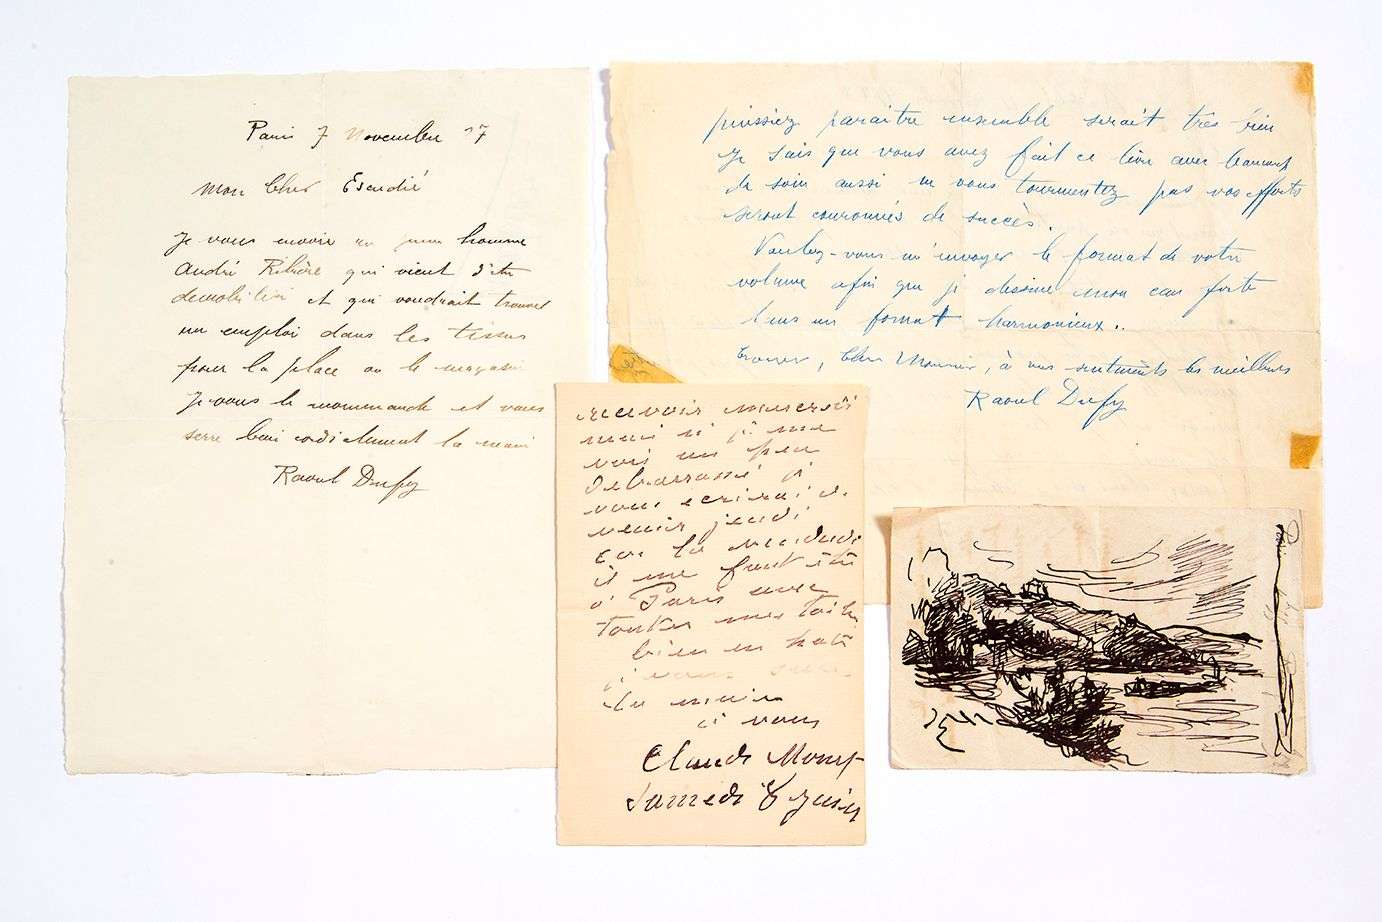 Paris 7 Novembre 17
Mon Cher Escudié
Je vous envoie un jeune homme
André Ribière qui vient d'être
démobilisé et qui voudrait trouver
un emploi dans les tissus
pour la place ou le magasin
Je vous le recommande et vous
serre bien cordialement la main
Raoul Dufy
puissiez paraitre ensemble serait très bien
Je sais que vous avez fait ce livre avec beaucoup
de soin aussi ne vous tourmentez pas vos efforts
seront couronnés de succès.
Voulez-vous m'envoyer le format de votre
volume afin que je dessine mon eau forte
dans un format harmonieux..
Croyez, Cher Monsieur, à mes sentiments les meilleurs
Raoul Dufy
recevoir mercredi
mais si je me
vois un peu
débarrassé je
vous écrirai de
venir jeudi
car le vendredi
il me faut être
à Paris avec
toutes mes toiles
bien en hâte
je vous serre
la main
à vous
Claude Monet
Samedi 8 Juin